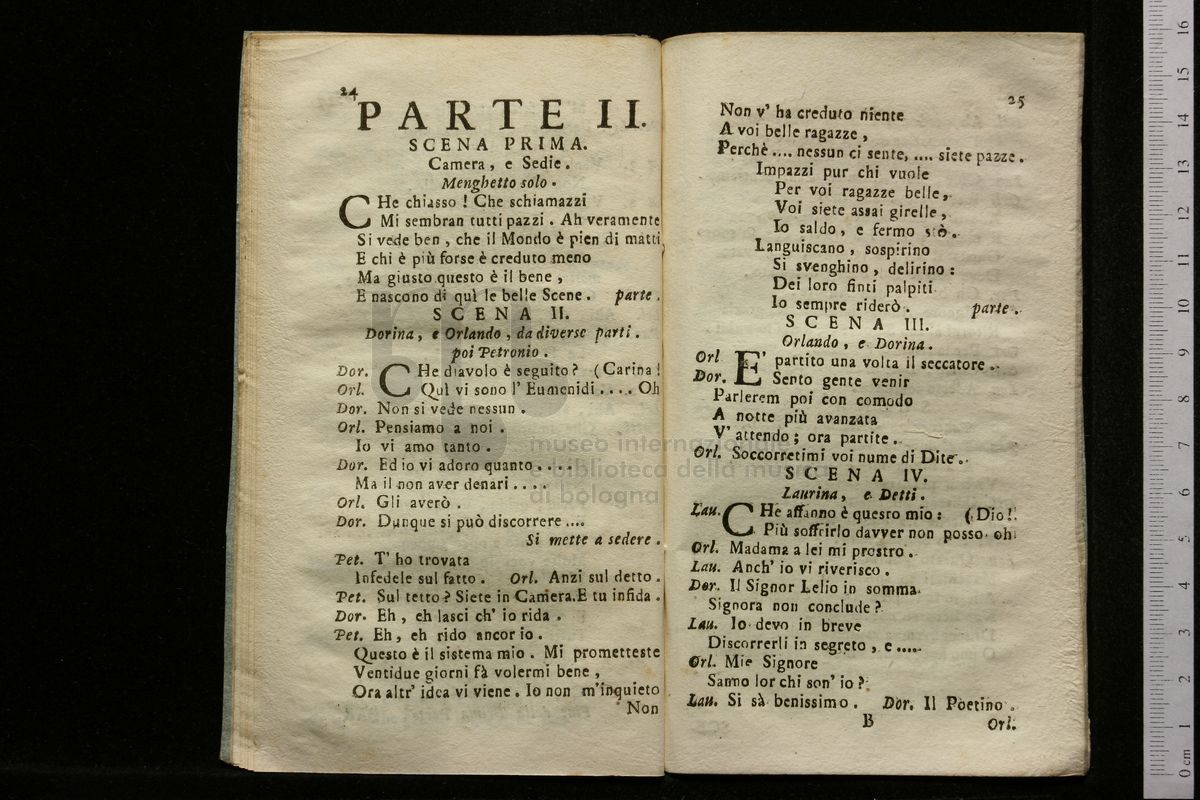 24
PARTE II.
SCENA PRIMA.
Camera, e Sedie.
Menghetto solo.
CHe chiasso! Che schiamazzi
Mi sembran tutti pazzi. Ah veramente
Si vede ben, che il Mondo è pien di matti
E chi è più forse è creduto meno
Ma giusto questo è il bene,
E nascono di quì le belle Scene. parte.
SCENA II.
Dorina, e Orlando, da diverse parti.
poi Petronio.
Dor. CHe diavolo è seguito? (Carina!
Orl. Quì vi sono l' Eumenidi .... Oh
Dor. Non si vede nessun.
Orl. Pensiamo a noi.
Io vi amo tanto.
Dor. Ed io vi adoro quanto ....
Ma il non aver denari ....
Orl. Gli averò.
Dor. Dunque si può discorrere ....
Si mette a sedere.
Pet. T' ho trovata
Infedele sul fatto. Orl. Anzi sul detto.
Pet. Sul tetto? Siete in Camera. E tu infida.
Dor. Eh, eh lasci ch' io rida.
Pet. Eh, eh rido ancor io.
Questo è il sistema mio. Mi prometteste
Ventidue giorni fà volermi bene,
Ora altr' idea vi viene. Io non m'inquieto
Non
25
Non v' ha creduto niente
A voi belle ragazze,
Perchè .... nessun ci sente, .... siete pazze.
Impazzi pur chi vuole
Per voi ragazze belle,
Voi siete assai girelle,
Io saldo, e fermo stò.
Languiscano, sospirino
Si svenghino, delirino:
Dei loro finti palpiti
Io sempre riderò. parte.
SCENA III.
Orlando, e Dorina.
Orl E' partito una volta il seccatore.
Dor. Sento gente venir
Parlerem poi con comodo
A notte più avanzata
V' attendo; ora partite.
Orl. Soccorretimi voi nume di Dite.
SCENA IV.
Laurina, e Detti.
Lau. CHe affanno è quesro mio: (Dio!
Più soffrirlo davver non posso oh
Orl. Madama a lei mi prostro.
Lau. Anch' io vi riverisco.
Dor. Il Signor Lelio in somma
Signora non conclude?
Lau. Io devo in breve
Discorrerli in segreto, e .....
Orl. Mie Signore
Sanno lor chi son' io?
Lau. Si sà benissimo. Dor. Il Poetino.
B Orl.
museo internazionale
e biblioteca della musica
di bologna
0 cm 1 2 3 4 5 6 7 8 9 10 11 12 13 14 15 16